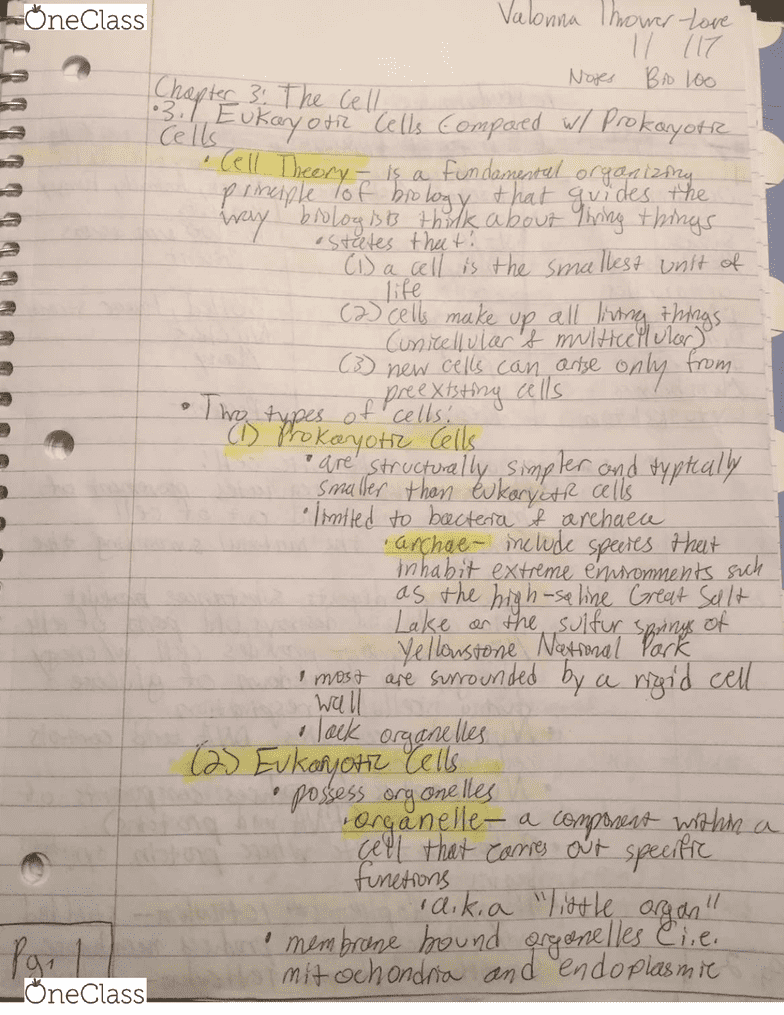 OneClass
Valonna Thrower-Love
11/ /17
Notes Bio 100
Chapter 3: The Cell
•3.1 Eukaryotic Cells Compared w/ Prokaryotic
Cells
• Cell Theory - is a fundamental organizing
principle of biology that guides the
way biologists think about living things
• states that:
(1) a cell is the smallest unit of
life
(2) cells make up all living things
(unicellular & multicellular)
(3) new cells can arise only from
preexisting cells
• Two types of cells:
(1) Prokaryotic Cells
• are structurally simpler and typically
smaller than eukaryotic cells
• limited to bacteria & archaea
• archae- include species that
inhabit extreme environments such
as the high-saline Great Salt
Lake or the sulfur springs of
Yellowstone National Park
• most are surrounded by a rigid cell
wall
• lack organelles
(2) Eukaryotic Cells
• possess organelles
• organelle- a component within a
cell that carries out specific
functions
• a.k.a "little organ"
• membrane bound organelles (i.e.
mitochondria and endoplasmic
Pg. 1
OneClass